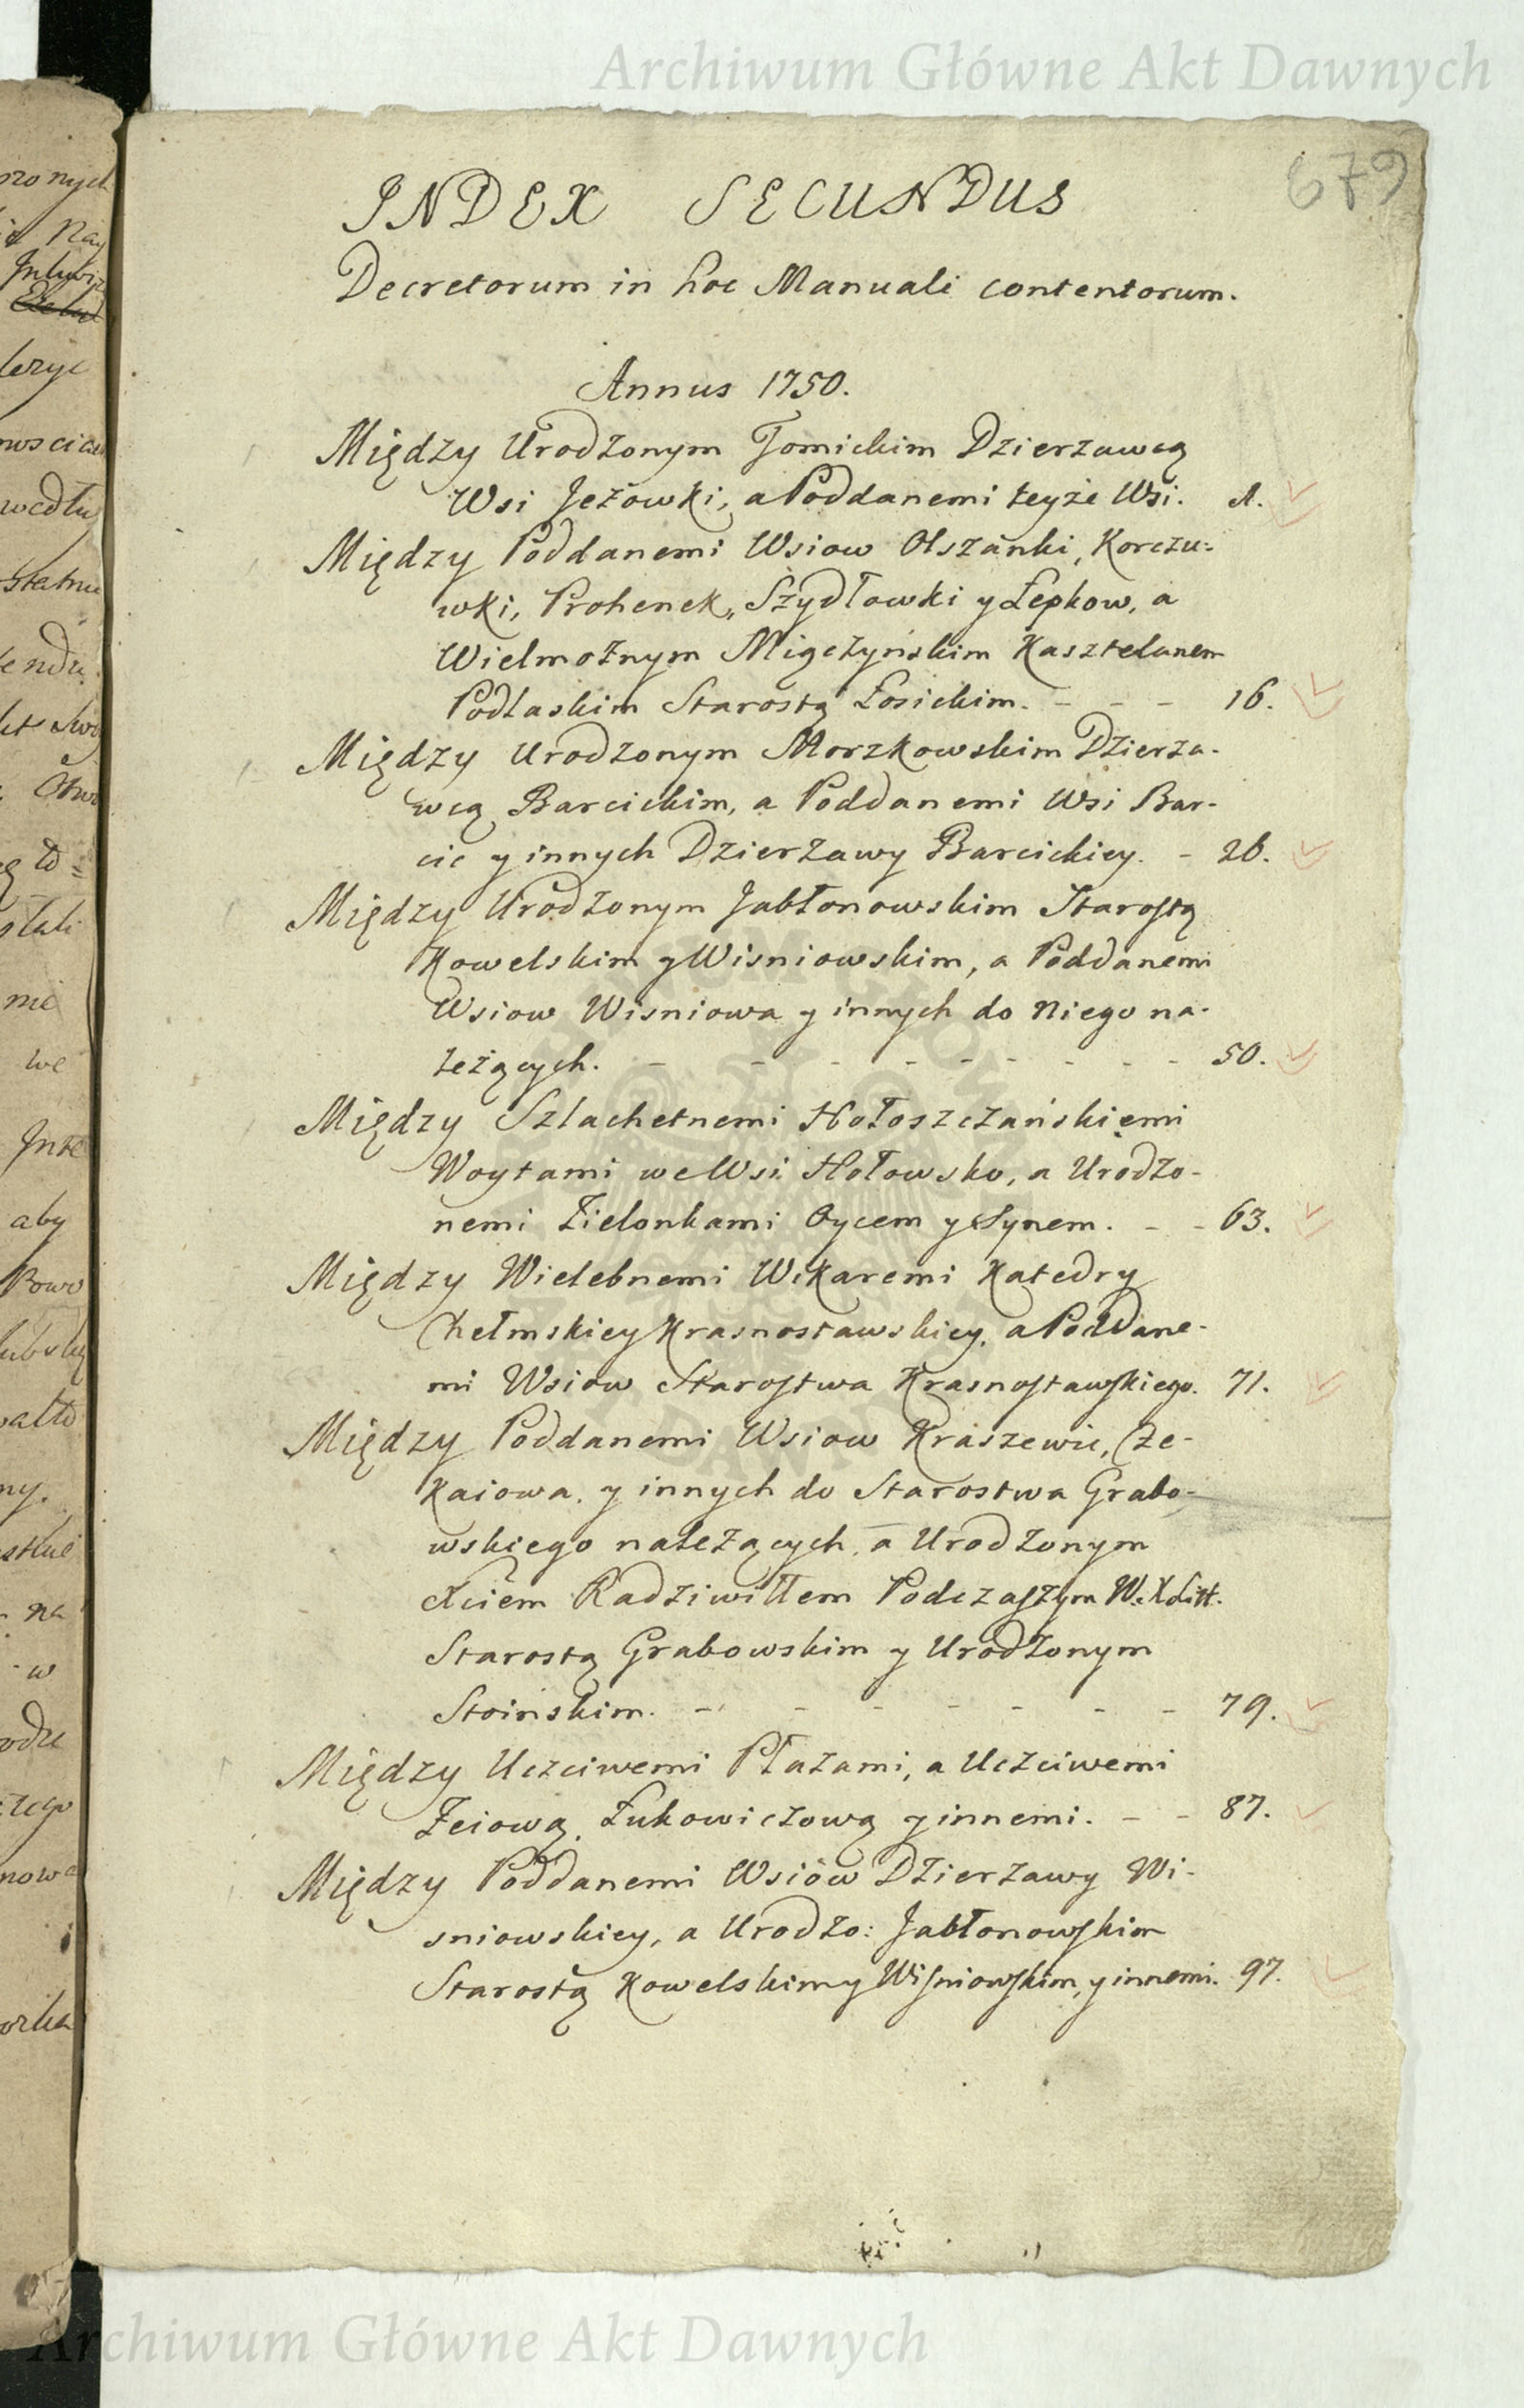 Archiwum Główne Akt Dawnych
679
INDEX SECUNDUS
Decretorum in hoc Manuali contentorum.
Annus 1750.
Między Urodzonym Tomickim Dzierzawcą
Wsi Jeżowki, a Poddanemi teyże Wsi. 1.
Między Poddanemi Wsiow Olszanki, Korczu-
wki, Prohenek, Szydłowki y Łepkow, a
Wielmożnym Miączyńskim Kasztelanem
Podlaskim Starostą Łosickim. - - - 16.
Między Urodzonym Morzkowskim Dzierza-
wcą Barcickim, a Poddanemi Wsi Bar-
cic y innych Dzierzawy Barcickiey. - 26.
Między Urodzonym Jabłonowskim Starostą
Kowelskim y Wisniowskim, a Poddanemi
Wsiow Wisniowa y innych do niego na-
leżących. - - - - - - - - - 50.
Między Szlachetnemi Hołoszczańskiemi
Woytami we Wsi Hołowsko, a Urodzo-
nemi Zielonkami Oycem y Synem. - - 63.
Między Wielebnemi Wikaremi Katedry
Chełmskiey Krasnostawskiey, a Poddane-
mi Wsiow Starostwa Krasnostawskiego. 71.
Między Poddanemi Wsiow Kraszewic, Cze-
kaiowa, y innych do Starostwa Grabo-
wskiego należących, a Urodzonym
Xciem Radziwiłłem Podczaszym W. X Litt.
Starostą Grabowskim y Urodzonym
Stoinskim. - - - - - - - - 79.
Między Uczciwemi Płazami, a Uczciwemi
Zciową, Łukowiczową y innemi. - - 87.
Między Poddanemi Wsiów Dzierzawy Wi-
sniowskiey, a Urodzo: Jabłonowskim
Starostą Kowelskim y Wisniowskim, y innemi. 97.
Archiwum Główne Akt Dawnych